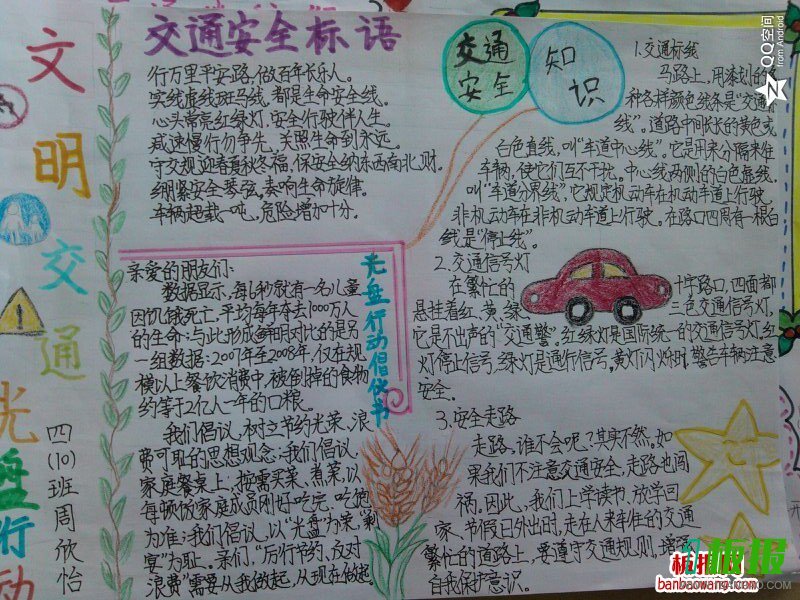 文明交通
光盘行动
四(10)班周欣怡
交通安全标语
行万里平安路,做百年长乐人。
实线虚线斑马线,都是生命安全线。
心头常亮红绿灯,安全行驶伴人生。
减速慢行勿争先,关照生命到永远。
守交规迎春夏秋冬福,保安全纳东西南北财.
绷紧安全琴弦,奏响生命旋律。
车辆超载一吨,危险增加十分.
光盘行动倡仪书
亲爱的朋友们:
数据显示,每6秒就有一名儿童
因饥饿死亡,平均每年夺去1000万人
的生命;与此形成鲜明对比的是另
一组数据:2007年至2008年,仅在规
模以上餐饮消费中,被倒掉的食物
约等于2亿人一年的口粮。
我们倡议,树立节约光荣、浪
费可耻的思想观念;我们倡议
家庭餐桌上,按需买菜、煮菜,以
每顿饭家庭成员刚好吃完、吃饱
为准;我们倡议,以“光盘”为荣,剩
宴”为耻。亲们,“厉行节约、反对
浪费”需要从我做起,从现在做起
交通安全
知识
1.交通标线
马路上,用漆划的
种各样颜色线条是“交通
线”。道路中间长长的黄色或
白色直线,叫“车道中心线”。它是用来分隔来往
车辆,使它们互不干扰。中心线两侧的白色虚线,
叫“车道分界线”,它规定机动车在机动车道上行驶,
非机动车在非机动车道上行驶。在路口四周有一根白
线是“停止线”。
2.交通信号灯
在繁忙的十字路口,四面都
悬挂着红、黄、绿、三色交通信号灯,
它是不出声的“交通警”。红绿灯是国际统一的交通信号灯,红
灯停止信号,绿灯是通行信号,黄灯闪烁时,警告车辆注意
安全。
3.安全走路
走路,谁不会呢?其实不然。如
果我们不注意交通安全,走路也闯
祸。因此,我们上学读书、放学回
家、节假日外出时,走在人来车往的交通
繁忙的道路上,要遵守交通规则,增强
自我保护意识。
QQ空间
from Android
板报
banbaowang.com